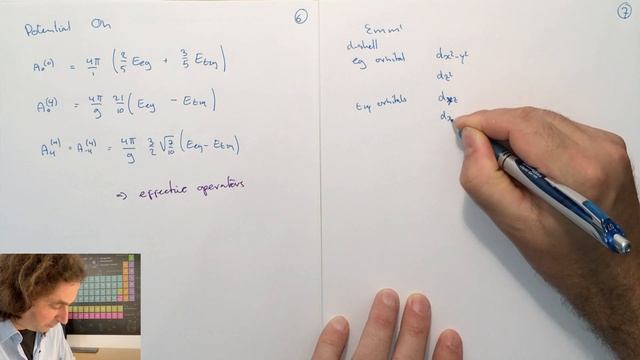 Potential Oh
6
A₀⁽⁰⁾ = 4π/1 ( 2/5 Eeg + 3/5 Et2g )
A₀⁽⁴⁾ = 4π/9 21/10 ( Eeg - Et2g )
A₄⁽⁴⁾ = A₋₄⁽⁴⁾ = 4π/9 3/2 √7/10 ( Eeg - Et2g )
⇒ effective operators
7
Emm'
d-shell
eg orbital dx²-y²
dz²
t2g orbitals
dx